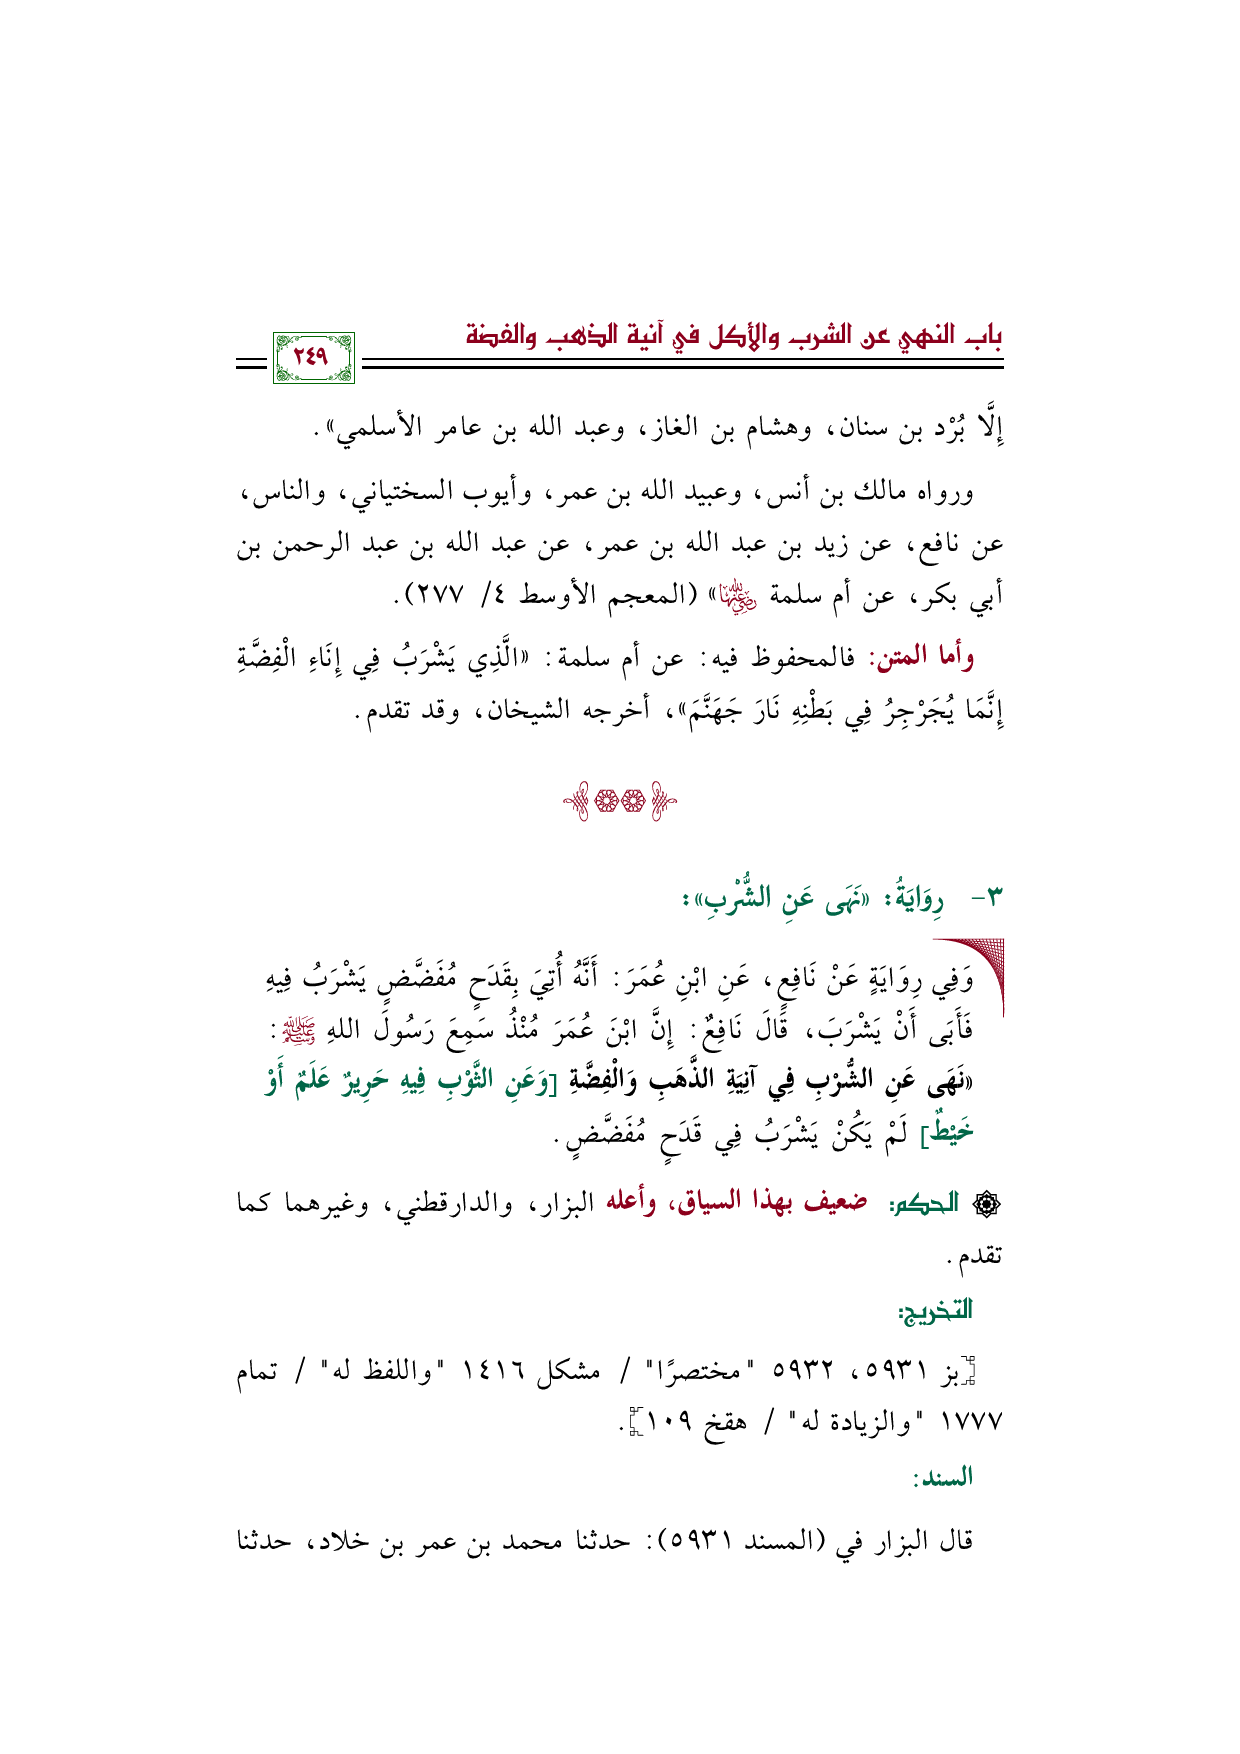 باب النهي عن الشرب والأكل في آنية الذهب والفضة
٢٤٩
إِلَّا بُرْد بن سنان، وهشام بن الغاز، وعبد الله بن عامر الأسلمي».
ورواه مالك بن أنس، وعبيد الله بن عمر، وأيوب السختياني، والناس،
عن نافع، عن زيد بن عبد الله بن عمر، عن عبد الله بن عبد الرحمن بن
أبي بكر، عن أم سلمة رضي الله عنها» (المعجم الأوسط ٤/ ٢٧٧).
وأما المتن: فالمحفوظ فيه: عن أم سلمة: «الَّذِي يَشْرَبُ فِي إِنَاءِ الْفِضَّةِ
إِنَّمَا يُجَرْجِرُ فِي بَطْنِهِ نَارَ جَهَنَّمَ»، أخرجه الشيخان، وقد تقدم.
٣- رِوَايَةُ: «نَهَى عَنِ الشُّرْبِ»:
وَفِي رِوَايَةٍ عَنْ نَافِعٍ، عَنِ ابْنِ عُمَرَ: أَنَّهُ أُتِيَ بِقَدَحٍ مُفَضَّضٍ يَشْرَبُ فِيهِ
فَأَبَى أَنْ يَشْرَبَ، قَالَ نَافِعٌ: إِنَّ ابْنَ عُمَرَ مُنْذُ سَمِعَ رَسُولَ اللهِ ﷺ:
«نَهَى عَنِ الشُّرْبِ فِي آنِيَةِ الذَّهَبِ وَالْفِضَّةِ [وَعَنِ الثَّوْبِ فِيهِ حَرِيرٌ عَلَمٌ أَوْ
خَيْطٌ] لَمْ يَكُنْ يَشْرَبُ فِي قَدَحٍ مُفَضَّضٍ.
الحكم: ضعيف بهذا السياق، وأعله البزار، والدارقطني، وغيرهما كما
تقدم.
التخريج:
[بز ٥٩٣١، ٥٩٣٢ "مختصرًا" / مشكل ١٤١٦ "واللفظ له" / تمام
١٧٧٧ "والزيادة له" / هقخ ١٠٩].
السند:
قال البزار في (المسند ٥٩٣١): حدثنا محمد بن عمر بن خلاد، حدثنا